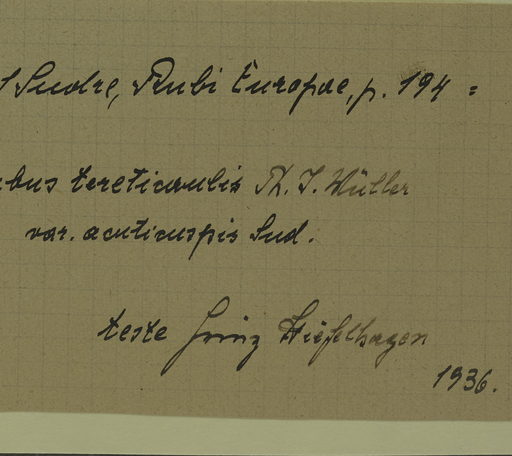 Sudre, Rubi Europae, p. 194 =
bus tereticaulis Ph. J. Müller
var. acuticuspis Sud.
teste Heinz Kiefelhagen
1936.